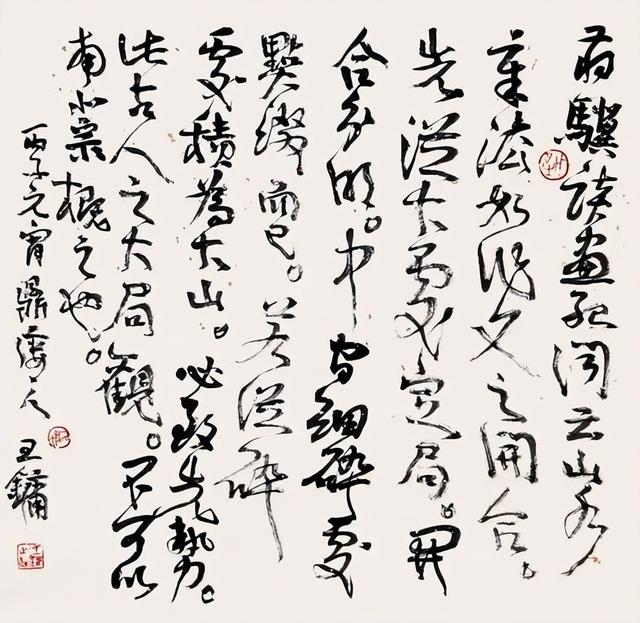 蒋驥读畫纪闻云山水
章法如作文之開合。
先從大處定局。開
合分明。中间细碎處
點綴而已。若從碎
處積為大山。必致失勢。
此古人之大局觀。不可以
南北宗概之也。
丙子元宵鼎 王鏞